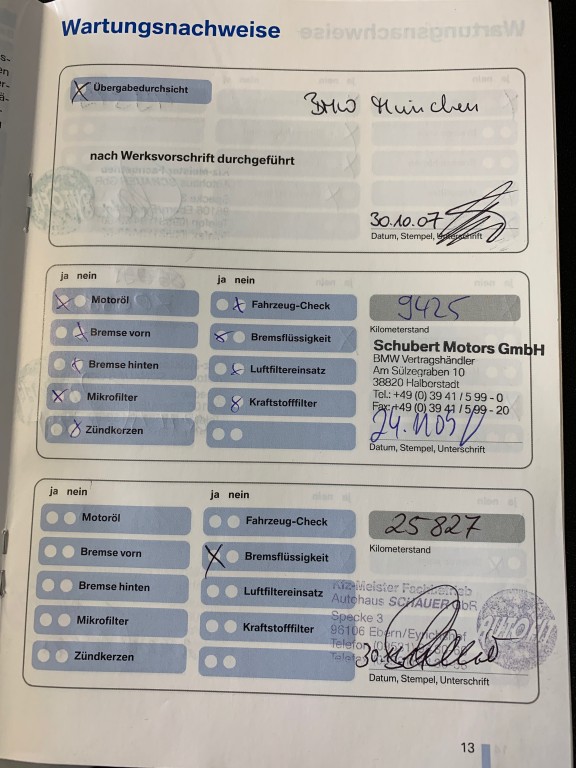 Wartungsnachweise
Übergabedurchsicht
BMW München
nach Werksvorschrift durchgeführt
30.10.07
Datum, Stempel, Unterschrift
ja nein
ja nein
Motoröl
Fahrzeug-Check
9425
Bremse vorn
Bremsflüssigkeit
Kilometerstand
Schubert Motors GmbH
BMW Vertragshändler
Bremse hinten
Luftfiltereinsatz
Am Sülzegraben 10
38820 Halberstadt
Mikrofilter
Kraftstofffilter
Tel.: +49 (0) 39 41 / 5 99 - 0
Fax: +49 (0) 39 41 / 5 99 - 20
Zündkerzen
Datum, Stempel, Unterschrift
ja nein
ja nein
Motoröl
Fahrzeug-Check
25827
Bremse vorn
Bremsflüssigkeit
Kilometerstand
Bremse hinten
Luftfiltereinsatz
Kfz-Meister Fachbetrieb
Autohaus SCHAUER GbR
Mikrofilter
Kraftstofffilter
Specke 3
96106 Ebern/Eyrichshof
Telefon
Zündkerzen
Telefax
Datum, Stempel, Unterschrift
13